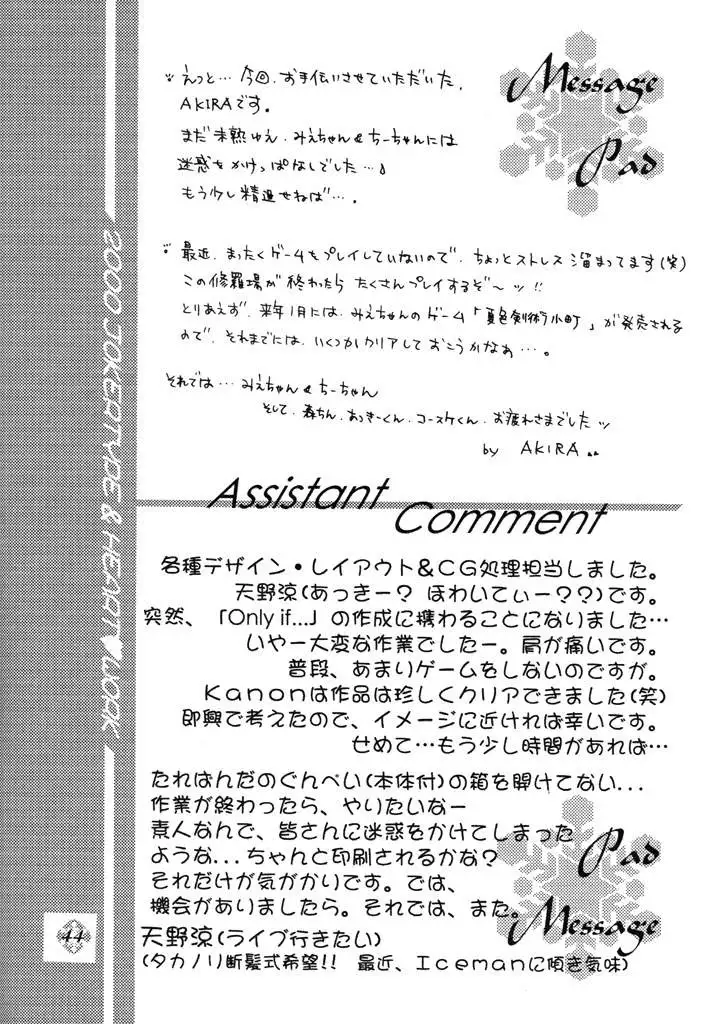 Message
Pad
えっと…今回、お手伝いさせていただいた、
AKIRAです。
まだ未熟ゆえ、みえちゃん&ちーちゃんには
迷惑をかけっぱなしでした…♪
もう少し精進せねば…。
最近、まったくゲームもプレイしていないので、ちょっとストレス溜まってます(笑)
この修羅場が終わったらたくさんプレイするぞ〜ッ!!
とりあえず、来年1月には、みえちゃんのゲーム「夏色剣術小町」が発売される
ので、それまでには、いくつかクリアしておこうかなぁ…。
それでは…みえちゃん&ちーちゃん
そして、森ちん、あっきーくん、コースケくん、お疲れさまでしたッ
by AKIRA
2000 JOKERTYPE & HEART♥WORK
Assistant
Comment
各種デザイン・レイアウト&CG処理担当しました。
天野涼(あっきー? ほわいてぃー??)です。
突然、「Only if...」の作成に携わることになりました…
いやー大変な作業でしたー。肩が痛いです。
普段、あまりゲームをしないのですが。
Kanonは作品は珍しくクリアできました(笑)
即興で考えたので、イメージに近ければ幸いです。
せめて…もう少し時間があれば…
たればんだのぐんぺい(本体付)の箱を開けてない...
作業が終わったら、やりたいなー
素人なんで、皆さんに迷惑をかけてしまった
ような...ちゃんと印刷されるかな?
それだけが気がかりです。では、
機会がありましたら。それでは、また。
天野涼(ライブ行きたい)
(タカノリ断髪式希望!! 最近、Icemanに傾き気味)
Pad
Message
44